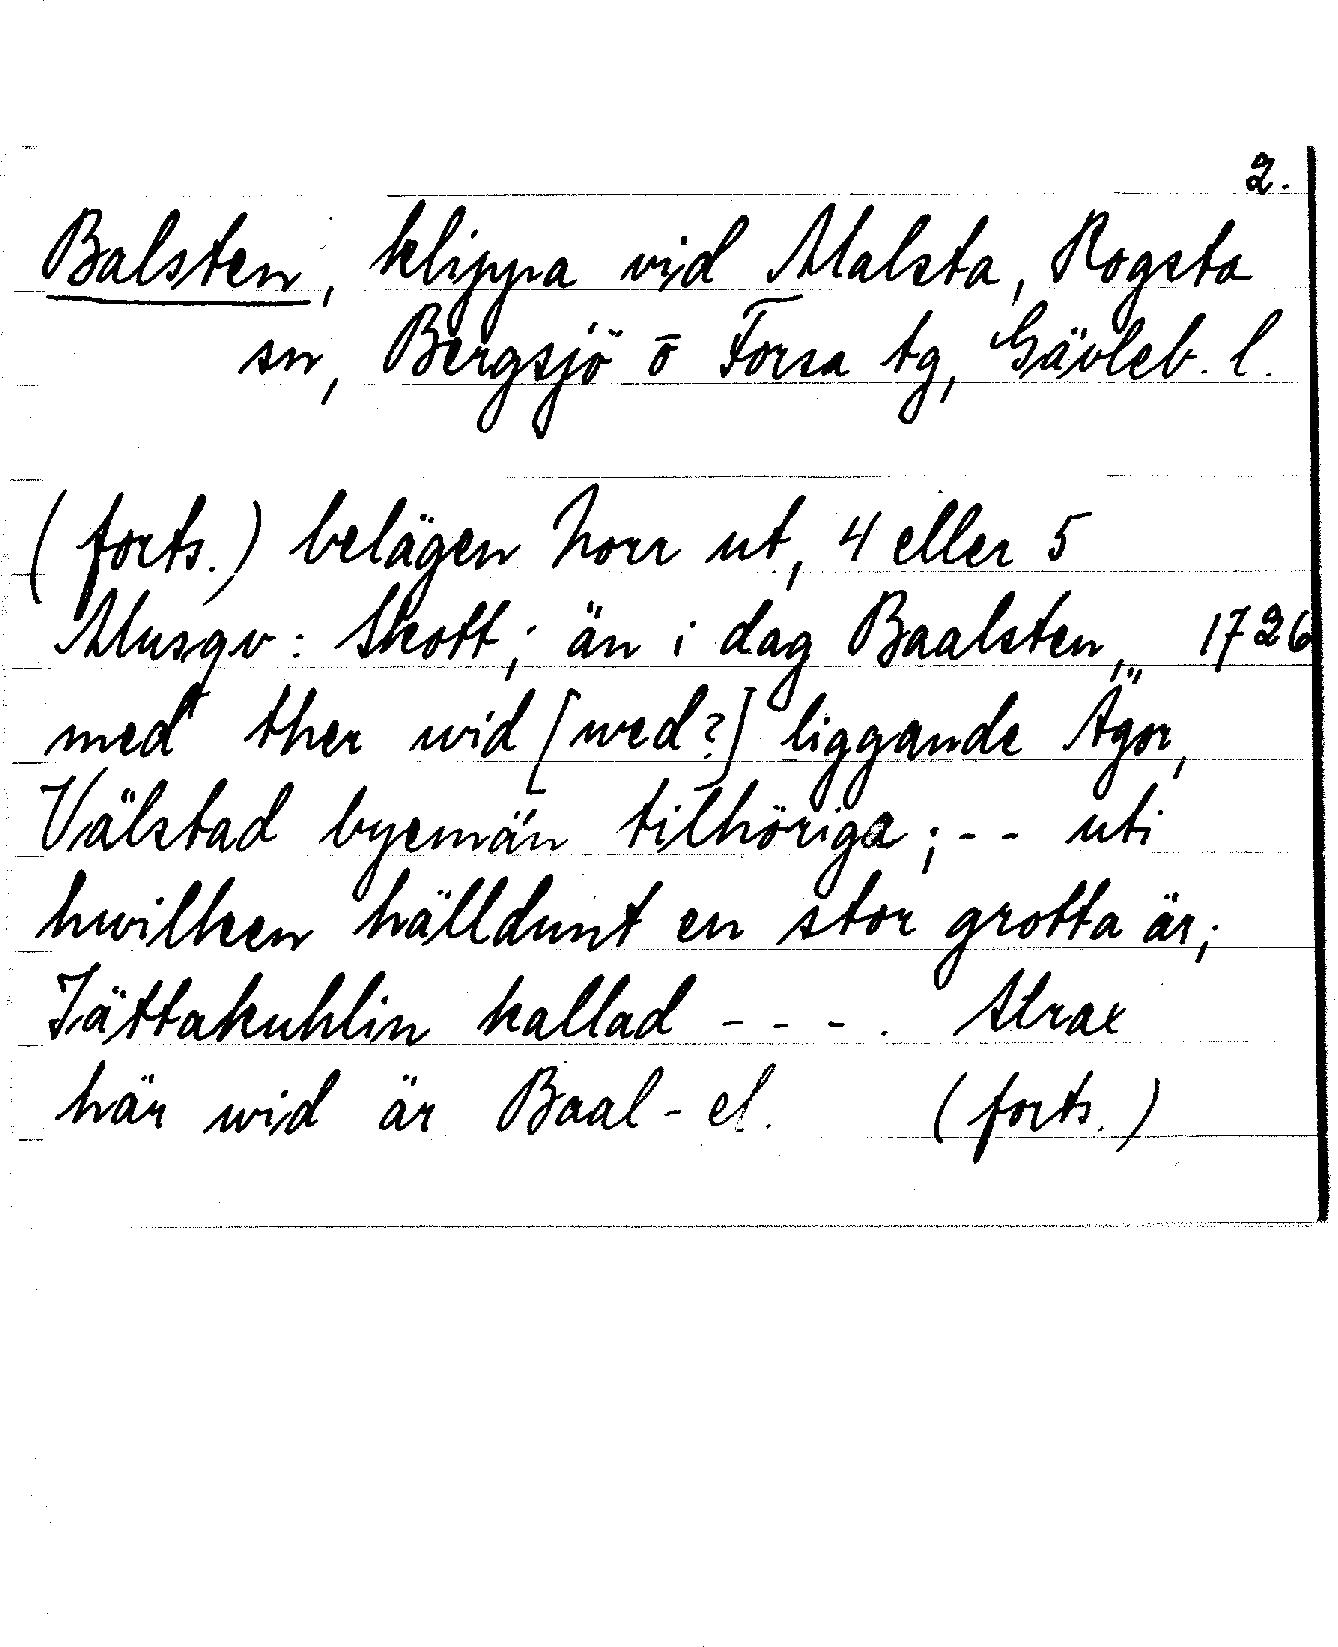 2.
Balsten, klippa vid Malsta, Rogsta
sn, Bergsjö o Forsa tg, Gävleb. l.
(forts.) belägen Norr ut, 4 eller 5
Musqv: Skott; än i dag Baalsten, 1726
med ther wid [wed?] liggande Ägor,
Välstad byemän tilhöriga; -- uti
hwilken hälldunt en stor grotta är;
Jättakuhlin kallad - - - . Strax
här wid är Baal- el. (forts.)